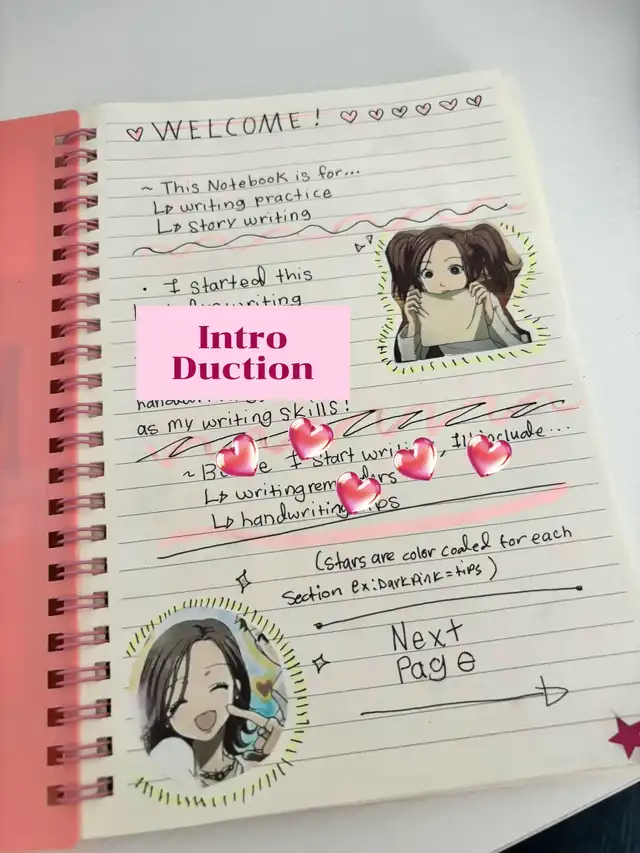 WELCOME!
~ This Notebook is for...
writing practice
story writing
• I started this
writing
Intro
Duction
as my writing skills!
I start include...
writing
handwriting
(stars are color coaled for each
Section ex: Dark Pink = tips)
Next
Page